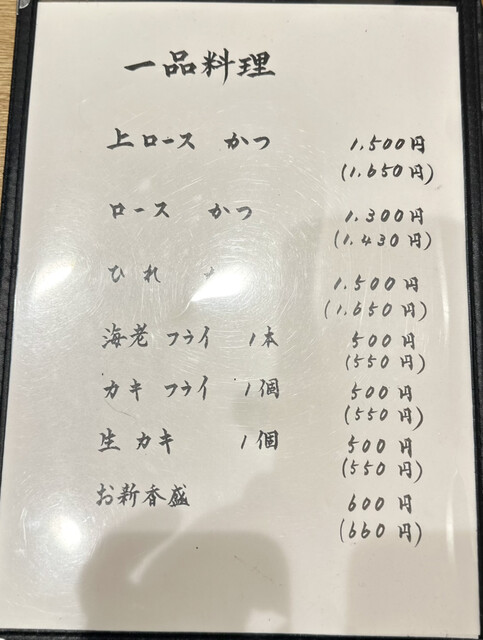 一品料理
上ロース かつ 1,500円
(1,650円)
ロース かつ 1,300円
(1,430円)
ひれ 1,500円
(1,650円)
海老フライ 1本 500円
(550円)
カキフライ 1個 500円
(550円)
生カキ 1個 500円
(550円)
お新香盛 600円
(660円)